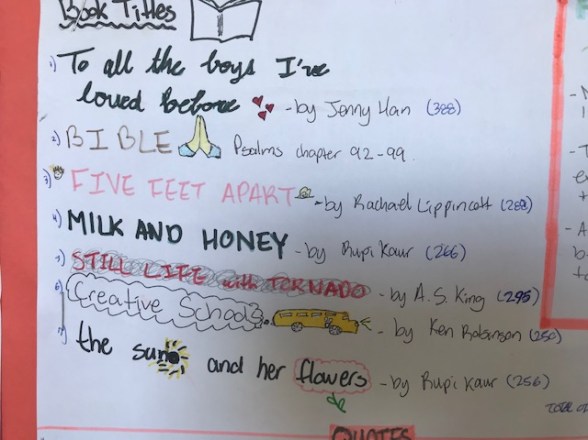 Book Titles
1) To all the boys I've
loved before - by Jenny Han (388)
2) BIBLE Psalms chapter 92-99
3) FIVE FEET APART - by Rachael Lippincott (288)
4) MILK AND HONEY - by Rupi Kaur (266)
5) STILL LIFE with TORNADO - by A.S. King (295)
6) Creative Schools - by Ken Robinson (250)
7) the sun and her flowers - by Rupi Kaur (256)
QUOTES